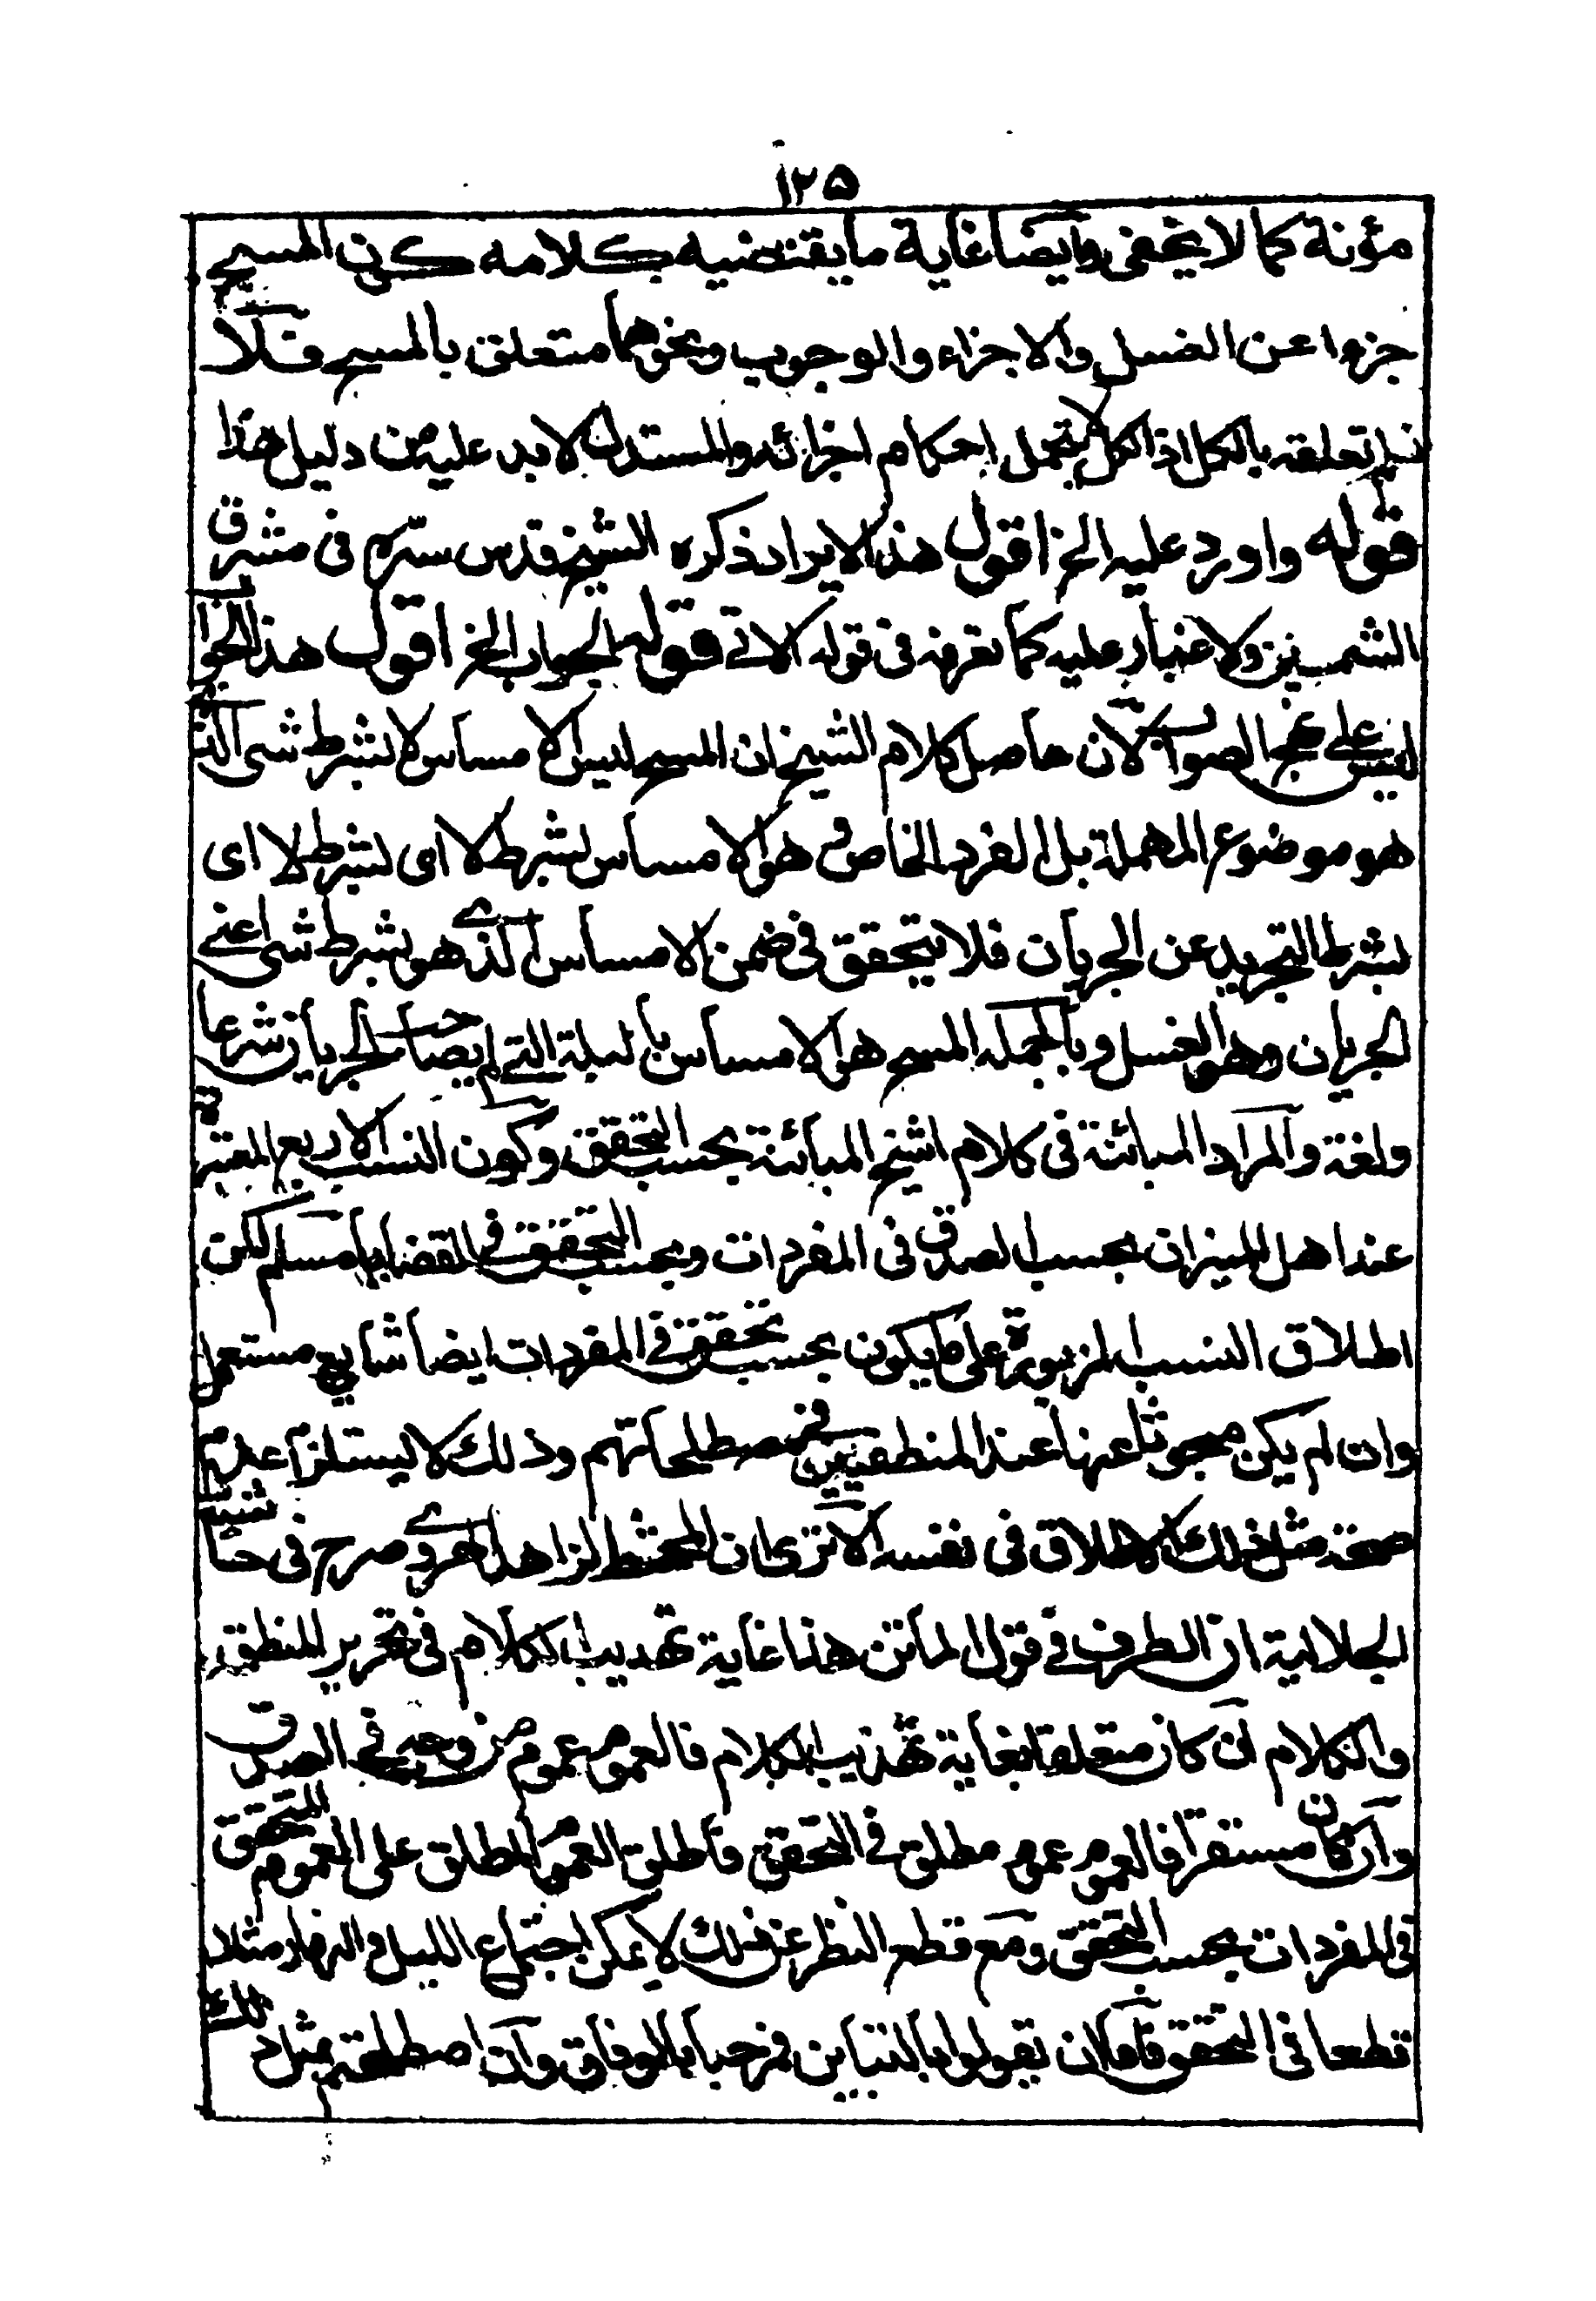 ١٢٥
مؤنة كما لا يخفى وايضا غاية ما يقتضيه كلامه كون المسح
جزءا عن الغسل والاجزاء والوجوب ونحوهما متعلق بالمسح فلا
تعلقه بالكل اذ الكل لا يتحمل احكام اجزائه والمستدل لابد عليه من دليل هذا
قوله واورد عليه الخ اقول هذا الايراد ذكره الشيخ قدس سره في مشرق
الشمسين ولا غبار عليه كما تعرفه في قوله الآتي قوله الجواب الخ اقول هذا الجواب
ليس على نهج الصواب لان حاصل كلام الشيخ ان المسح ليس الامساس لا بشرط شئ الذي
هو موضوع المهملة بل الفرد الخاص هو الامساس بشرط لا اى بشرط لا اى
بشرط التجريد عن الجريان فلا يتحقق في ضمن الامساس الذي هو بشرط شئ اعنى
الجريان وهو الغسل وبالجملة المسح هو الامساس بالبلة التي لم يصاحب الجريان شرعا
ولغة والمراد المبائنة في كلام الشيخ المبائنة بحسب التحقق وكون النسب الاربع المعتبرة
عند اهل الميزان بحسب الصدق في المفردات وبحسب التحقق في القضايا مسلم لكن
اطلاق النسب المزبورة على ما يكون بحسب تحقق في المفردات ايضا شايع مستعمل
وان لم يكن مبحوثا عنها عند المنطقيين في مصطلحاتهم وذلك لا يستلزم عدم
صحة مثل ذلك الاطلاق في نفسه الا ترى ان المحشى الزاهد الهروي صرح في حاشية
الجلالية ان الظرف في قول الماتن هذا غاية تهذيب الكلام في تحرير المنطق
والكلام ان كان متعلقا بغاية تهذيب الكلام فالعموم عموم من وجه في الصدق
وان كان مستقرا فالعموم عموم مطلق في التحقق فاطلق العموم المطلق على العموم المتحقق
في المفردات بحسب التحقق ومع قطع النظر عن ذلك لا يمكن اجتماع الليل والنهار مثلا
قطعا في التحقق فاما ان يقولوا بالتباين فمرحبا بالوفاق وان اصطلحتم مثل ذلك